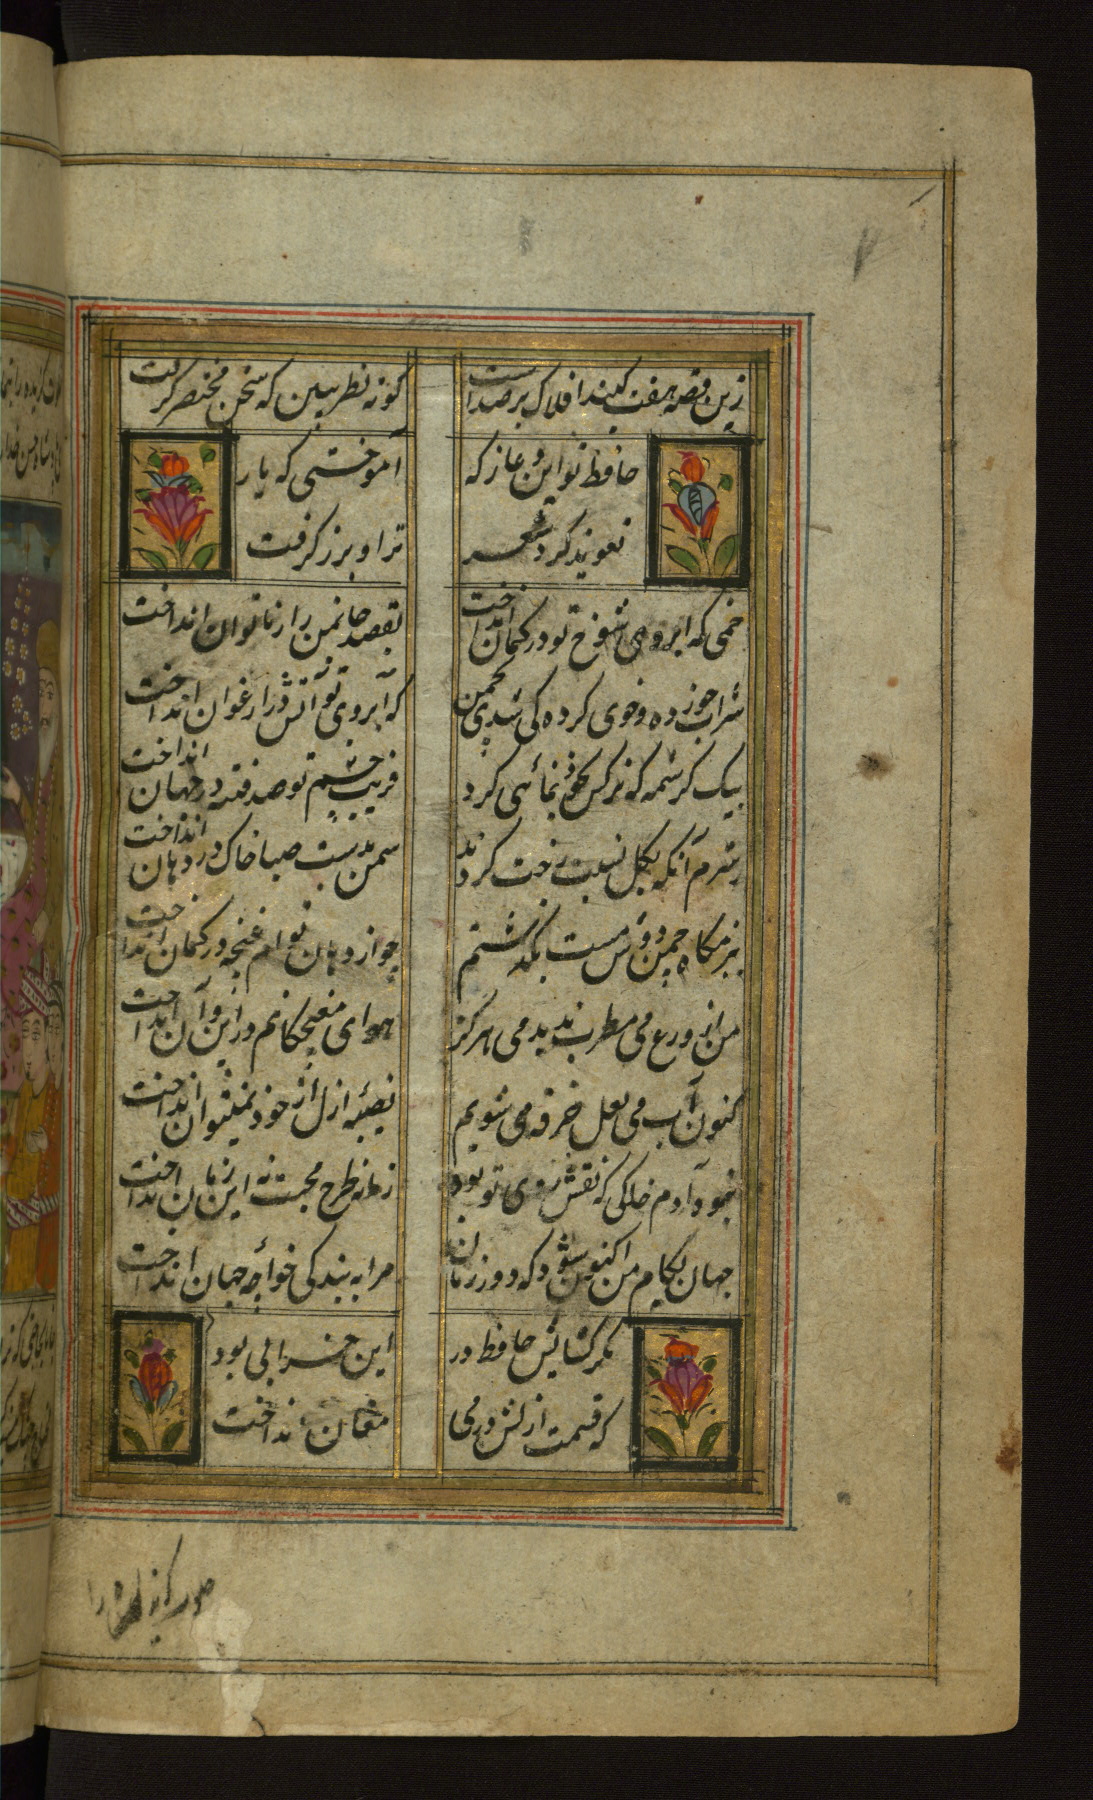 زین قصه هفت کنبد افلاک بر صداست
کوته نظر ببین که سخن مختصر گرفت
حافظ تو این دعا ز که
آموختی که یار
تعویذ کرد شعر
ترا و بزر گرفت
خمی که ابروی شوخ تو در کمان انداخت
بقصد جان من زار ناتوان انداخت
شراب خورده و خوی کرده کی شدی بچمن
که آبروی تو آتش در ارغوان انداخت
بیک کرشمه که نرکس بخود نمائی کرد
فریب چشم تو صد فتنه در جهان انداخت
ز شرم آنکه بکل نسبت رخت کردند
سمن بدست صبا خاک در دهان انداخت
ببزمکاه چمن دوش مست بگذشتم
چو از دهان توام غنچه در کمان انداخت
من از ورع می مطرب ندیدمی هرکز
هوای مغبچکانم در این و آن انداخت
کنون بآب می لعل خرقه می شویم
نصیبه ازل از خود نمیتوان انداخت
نبود آدم خاکی که نقش روی تو بود
زمانه طرح محبت نه این زمان انداخت
جهان بکام من اکنون شود که دور زمان
مرا به بندکی خواجه جهان انداخت
مکر کشایش حافظ در
این خرابی بود
که قسمت ازلش در می
مغان انداخت